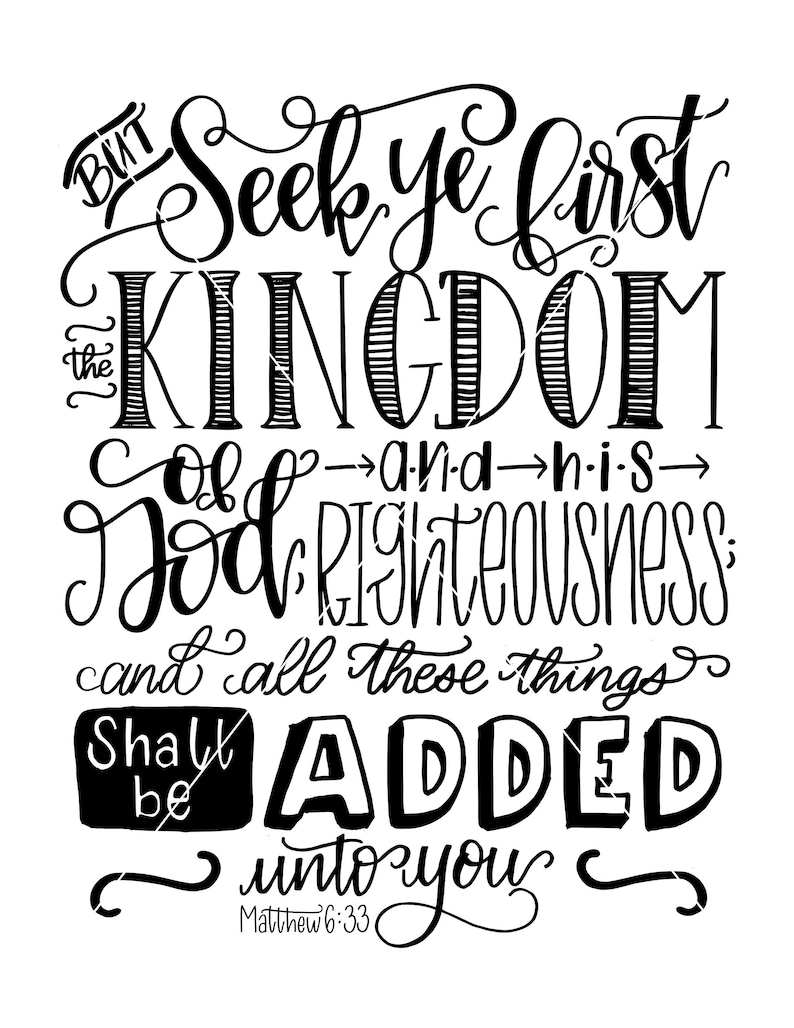 BUT Seek ye first
the KINGDOM
of and his
God, RIghteousness;
and all these things
Shall be ADDED
unto you
Matthew 6:33